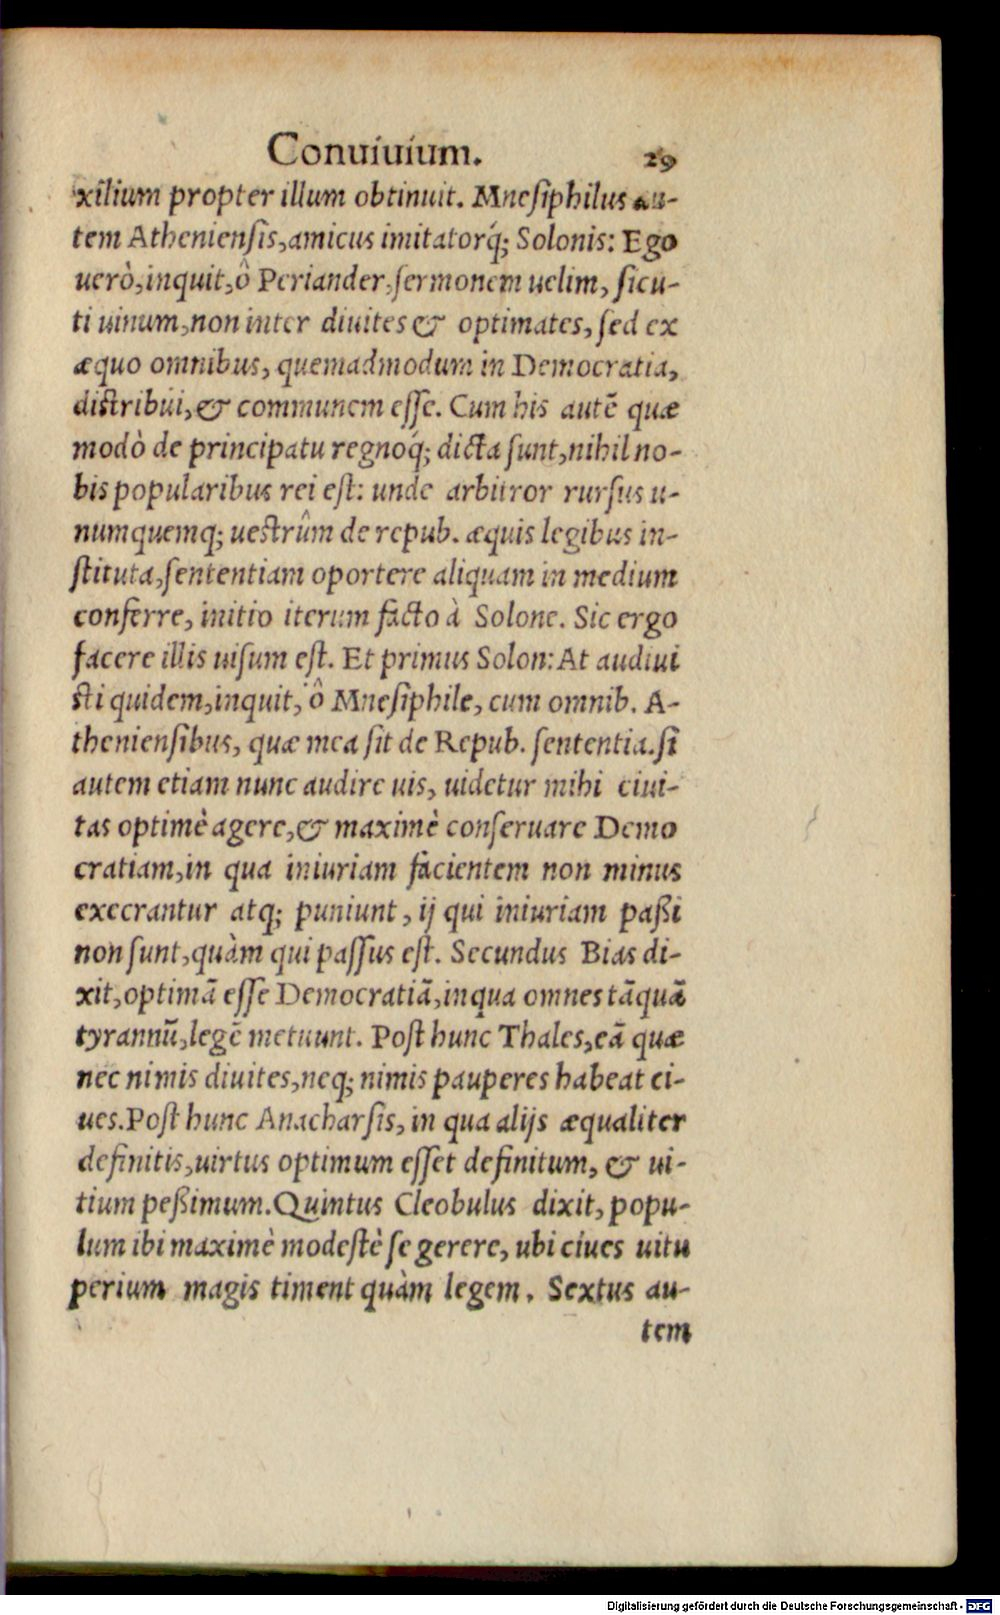 Conuiuium. 29
xilium propter illum obtinuit. Mnesiphilus au-
tem Atheniensis, amicus imitatorq́; Solonis: Ego
uerò, inquit, ô Periander, sermonem uelim, sicu-
ti uinum, non inter diuites & optimates, sed ex
æquo omnibus, quemadmodum in Democratia,
distribui, & communem esse. Cum his autẽ quæ
modò de principatu regnoq́; dicta sunt, nihil no-
bis popularibus rei est: unde arbitror rursus u-
numquemq; uestrûm de repub. æquis legibus in-
stituta, sententiam oportere aliquam in medium
conferre, initio iterum facto à Solone. Sic ergo
facere illis uisum est. Et primus Solon: At audiui
sti quidem, inquit, ô Mnesiphile, cum omnib. A-
theniensibus, quæ mea sit de Repub. sententia. si
autem etiam nunc audire uis, uidetur mihi ciui-
tas optimè agere, & maximè conseruare Demo
cratiam, in qua iniuriam facientem non minus
execrantur atq; puniunt, ij qui iniuriam paßi
non sunt, quàm qui passus est. Secundus Bias di-
xit, optimã esse Democratiã, in qua omnes tãquã
tyrannũ, legẽ metuunt. Post hunc Thales, eã quæ
nec nimis diuites, neq; nimis pauperes habeat ci-
ues. Post hunc Anacharsis, in qua alijs æqualiter
definitis, uirtus optimum esset definitum, & ui-
tium peßimum. Quintus Cleobulus dixit, popu-
lum ibi maximè modestè se gerere, ubi ciues uitu
perium magis timent quàm legem. Sextus au-
tem
Digitalisierung gefördert durch die Deutsche Forschungsgemeinschaft - DFG